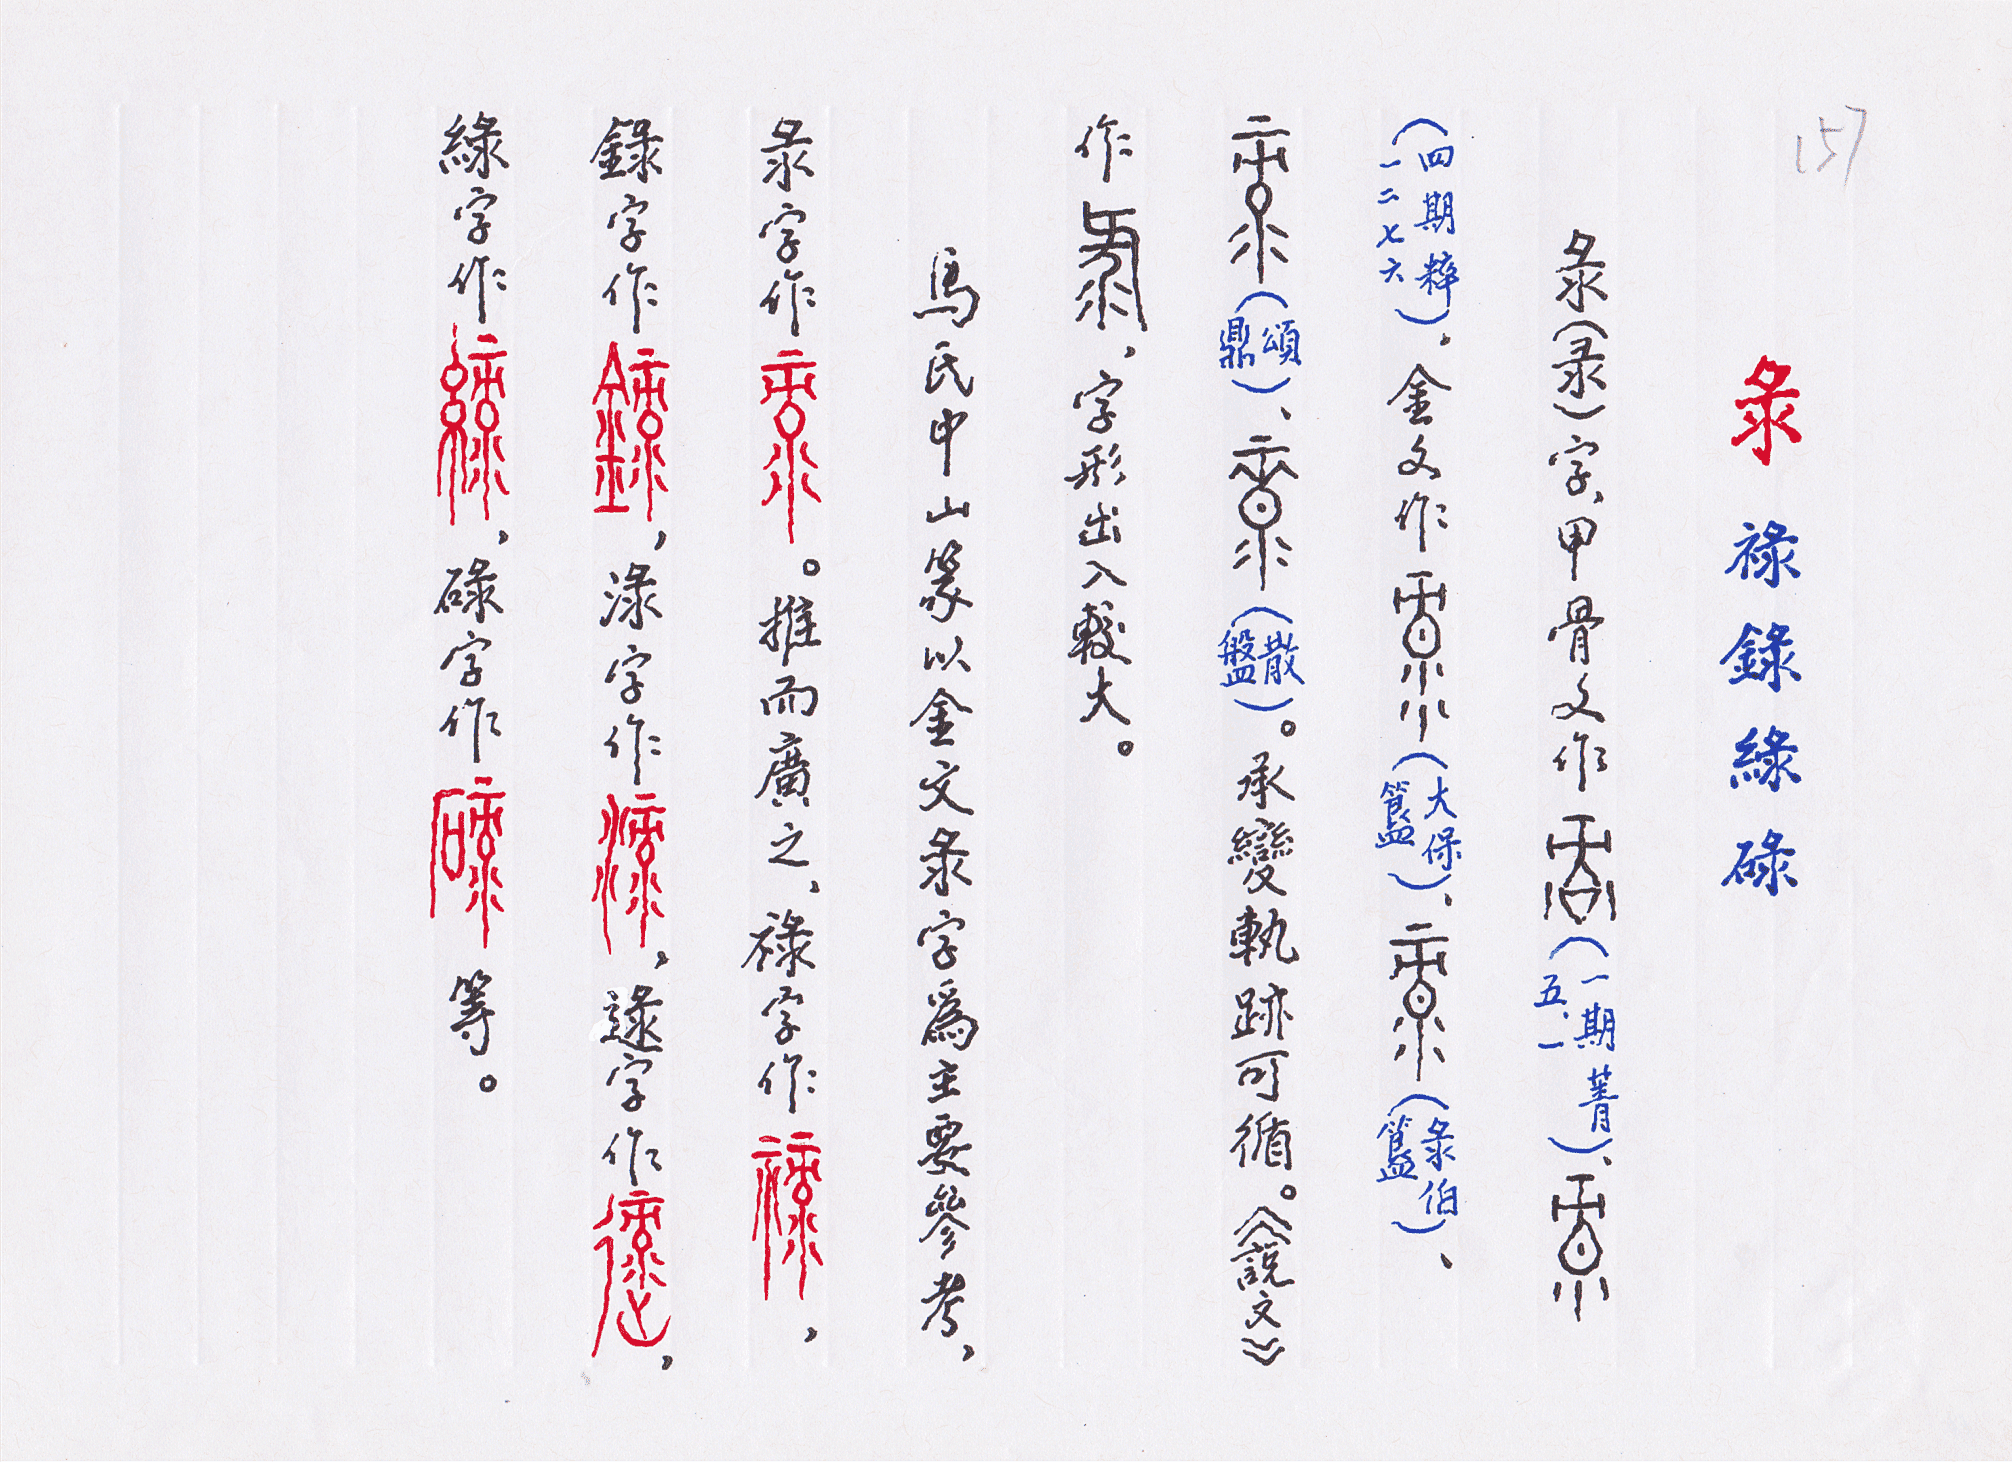 157
彔 祿 錄 綠 碌
彔（录）字、甲骨文作（一期菁五、一）、
（四期粹一二七六）、金文作（大保簋）、（彔伯簋）、
（頌鼎）、（散盤）。承變軌跡可循。《說文》
作，字形出入較大。
馬氏中山篆以金文彔字為主要參考，
彔字作。推而廣之、祿字作，
錄字作，淥字作，逯字作，
綠字作，碌字作等。